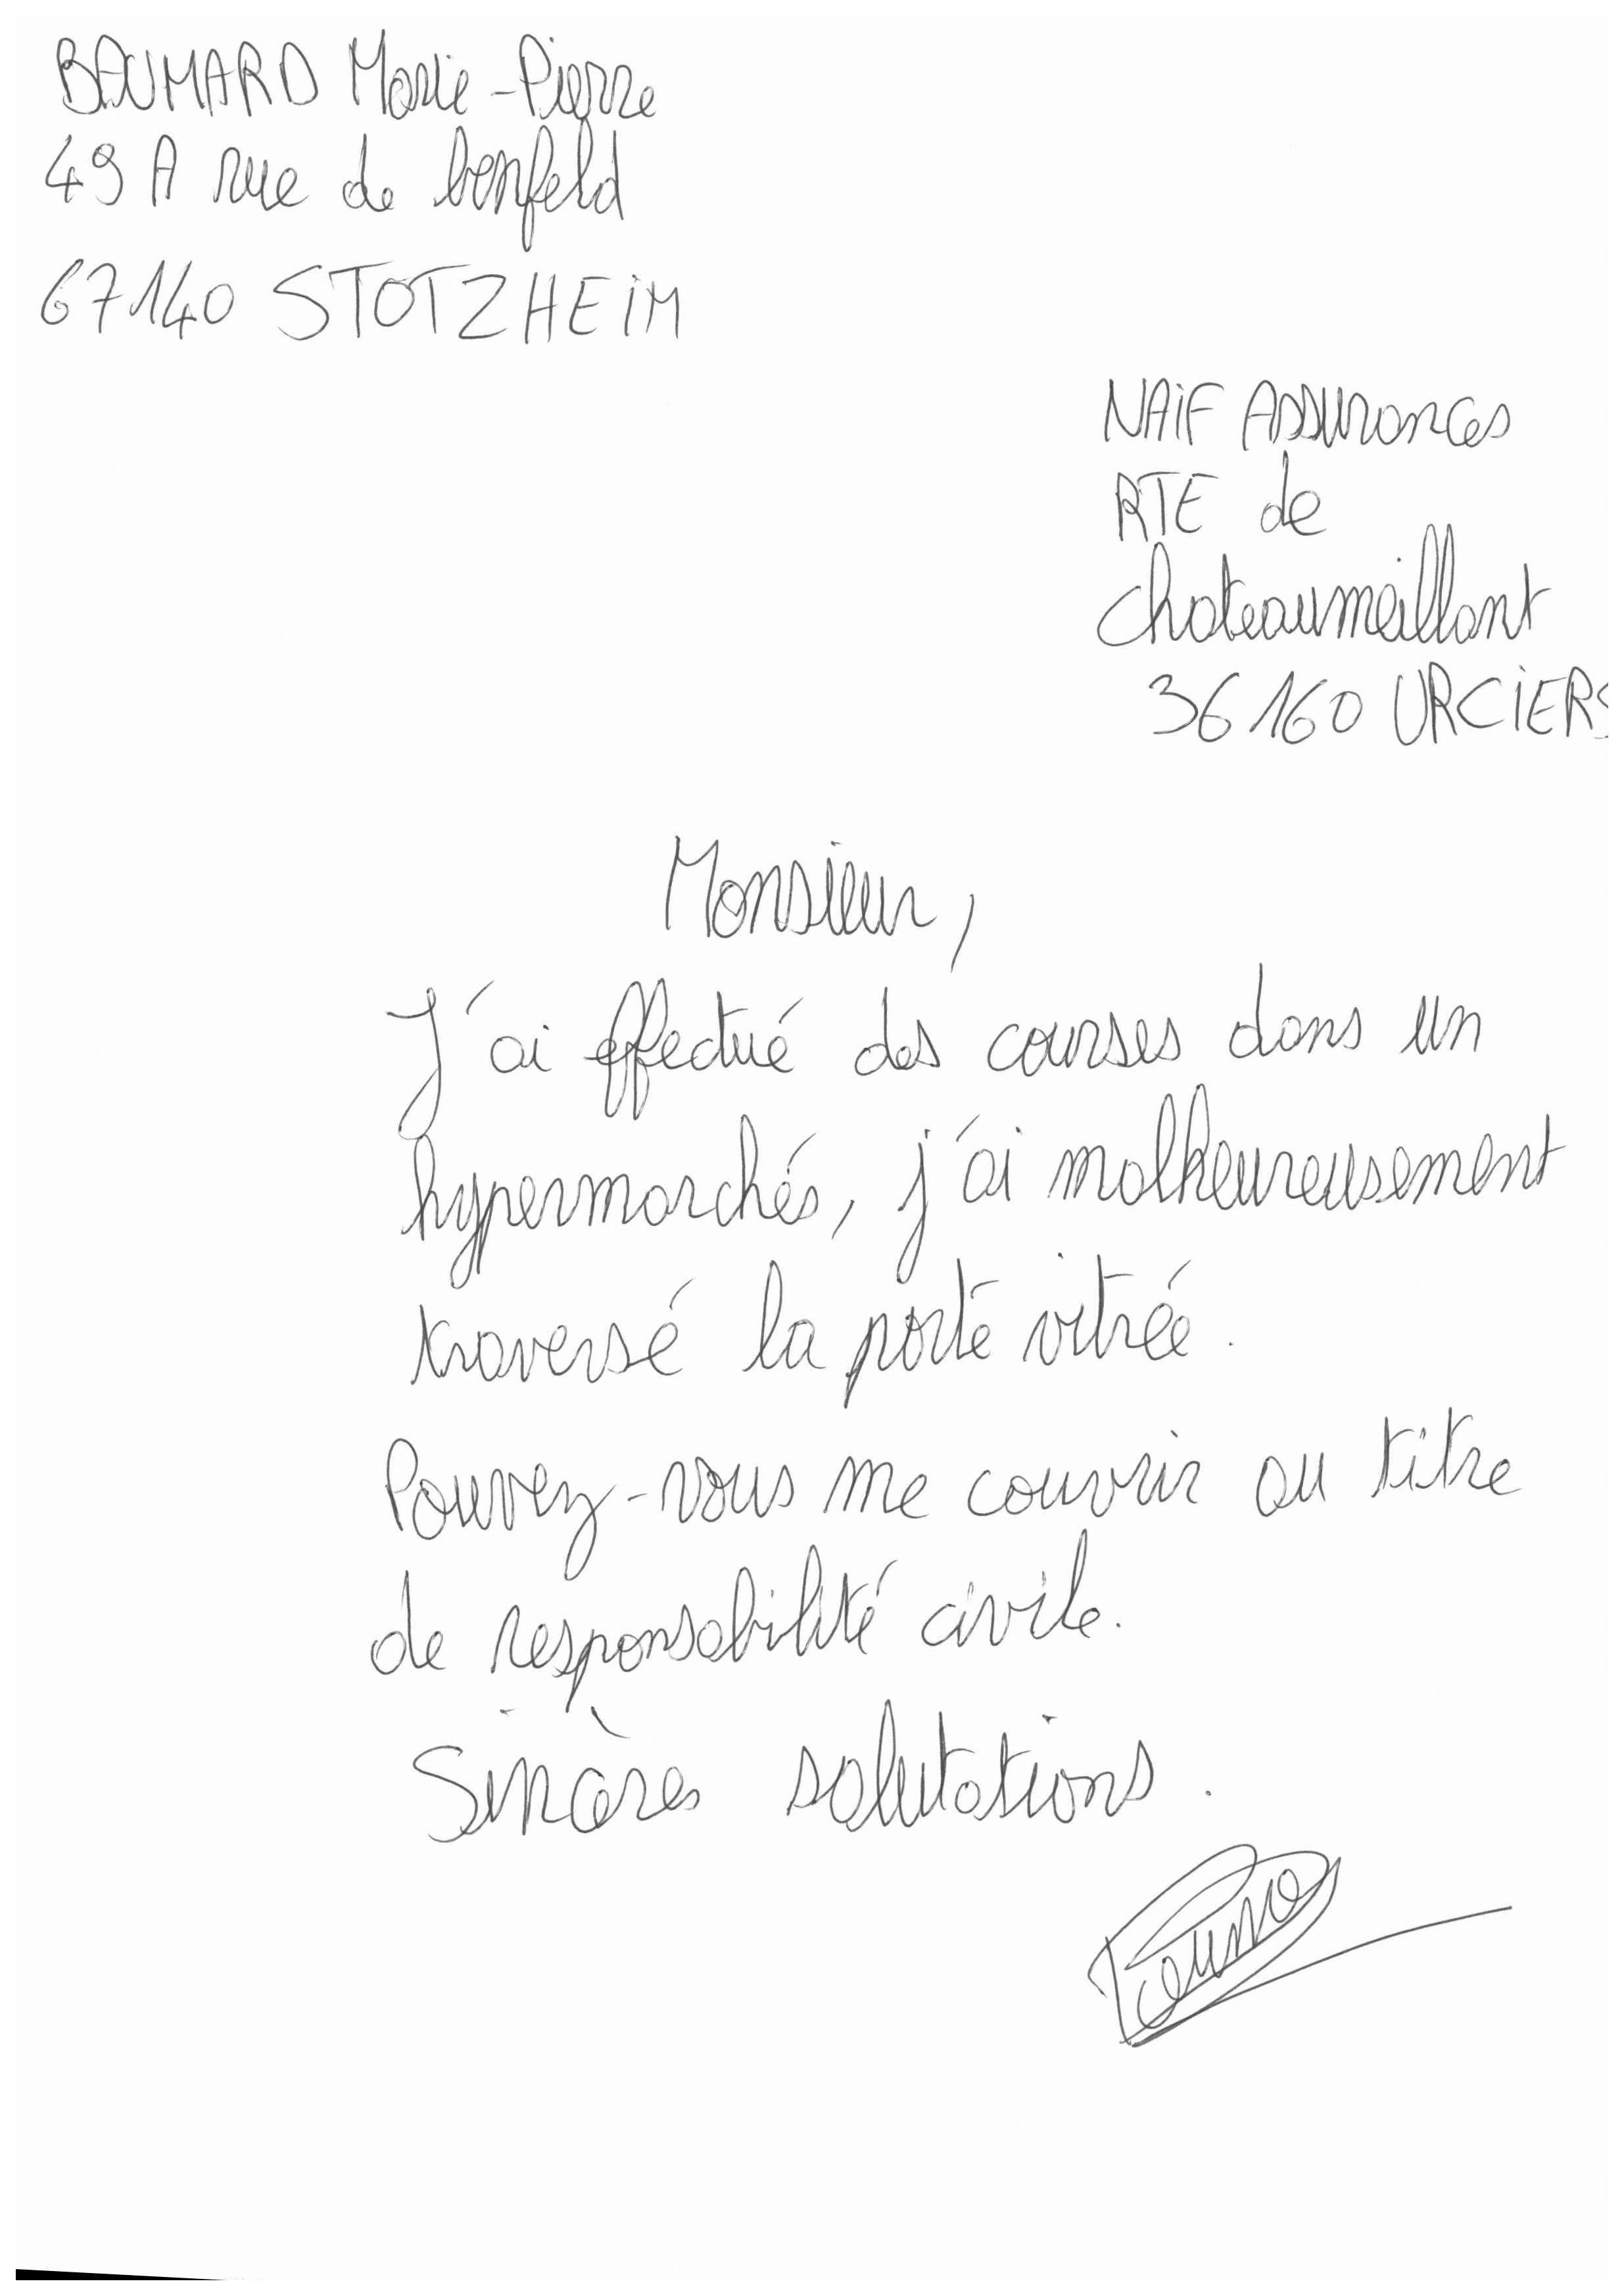 BAUMARD Marie-Pierre
49 A rue de benfeld
67140 STOTZHEIM
NAIF Assurances
RTE de
chateaumeillant
36160 URCIERS
Monsieur,
J'ai effectué des courses dans un
hypermarchés, j'ai malheureusement
traversé la porte vitrée.
Pouvez-vous me couvrir au titre
de responsabilité civile.
Sincères salutations.